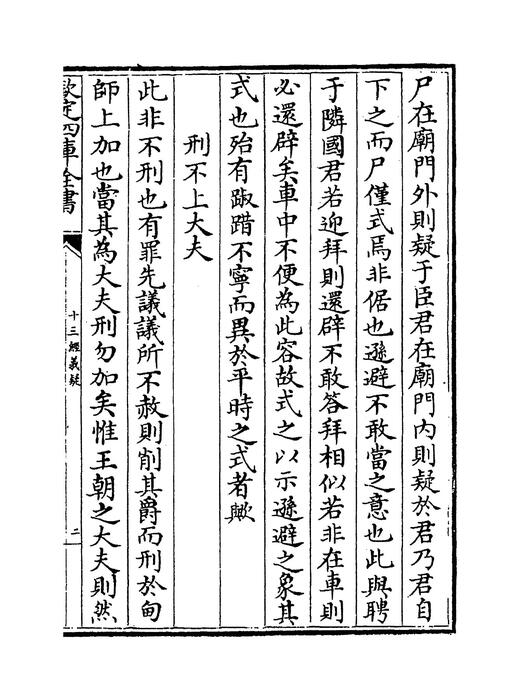 尸在廟門外則疑于臣君在廟門内則疑於君乃君自
下之而尸僅式焉非倨也遜避不敢當之意也此與聘
于隣國君若迎拜則還辟不敢答拜相似若非在車則
必還辟矣車中不便為此容故式之以示遜避之象其
式也殆有踧踖不寧而異於平時之式者歟
刑不上大夫
此非不刑也有罪先議議所不赦則削其爵而刑於甸
師上加也當其為大夫刑勿加矣惟王朝之大夫則然
欽定四庫全書
十三經義疑
二